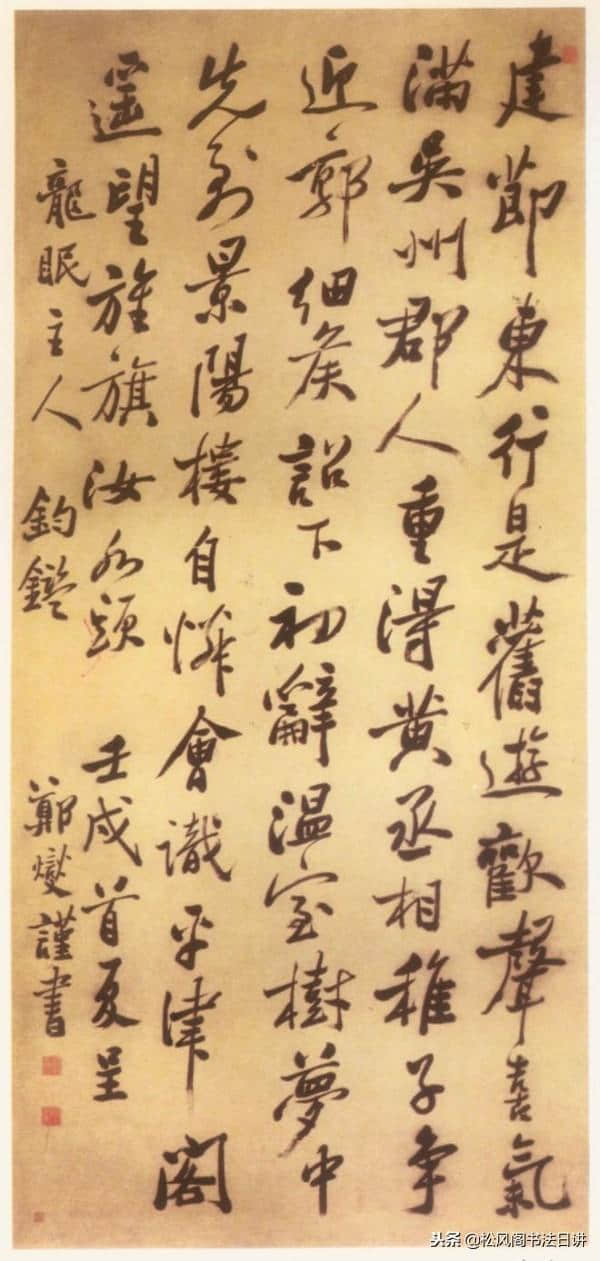 建節東行是舊遊歡聲喜氣
滿吳州郡人重得黃丞相稚子爭
迎郭細侯詔下初辭溫室樹夢中
先到景陽樓自憐會識平津閣
遙望旌旗汝水頭 壬戌首夏呈
龍眠主人 鈞鑒 鄭燮謹書
头条 @松风阁书法日讲